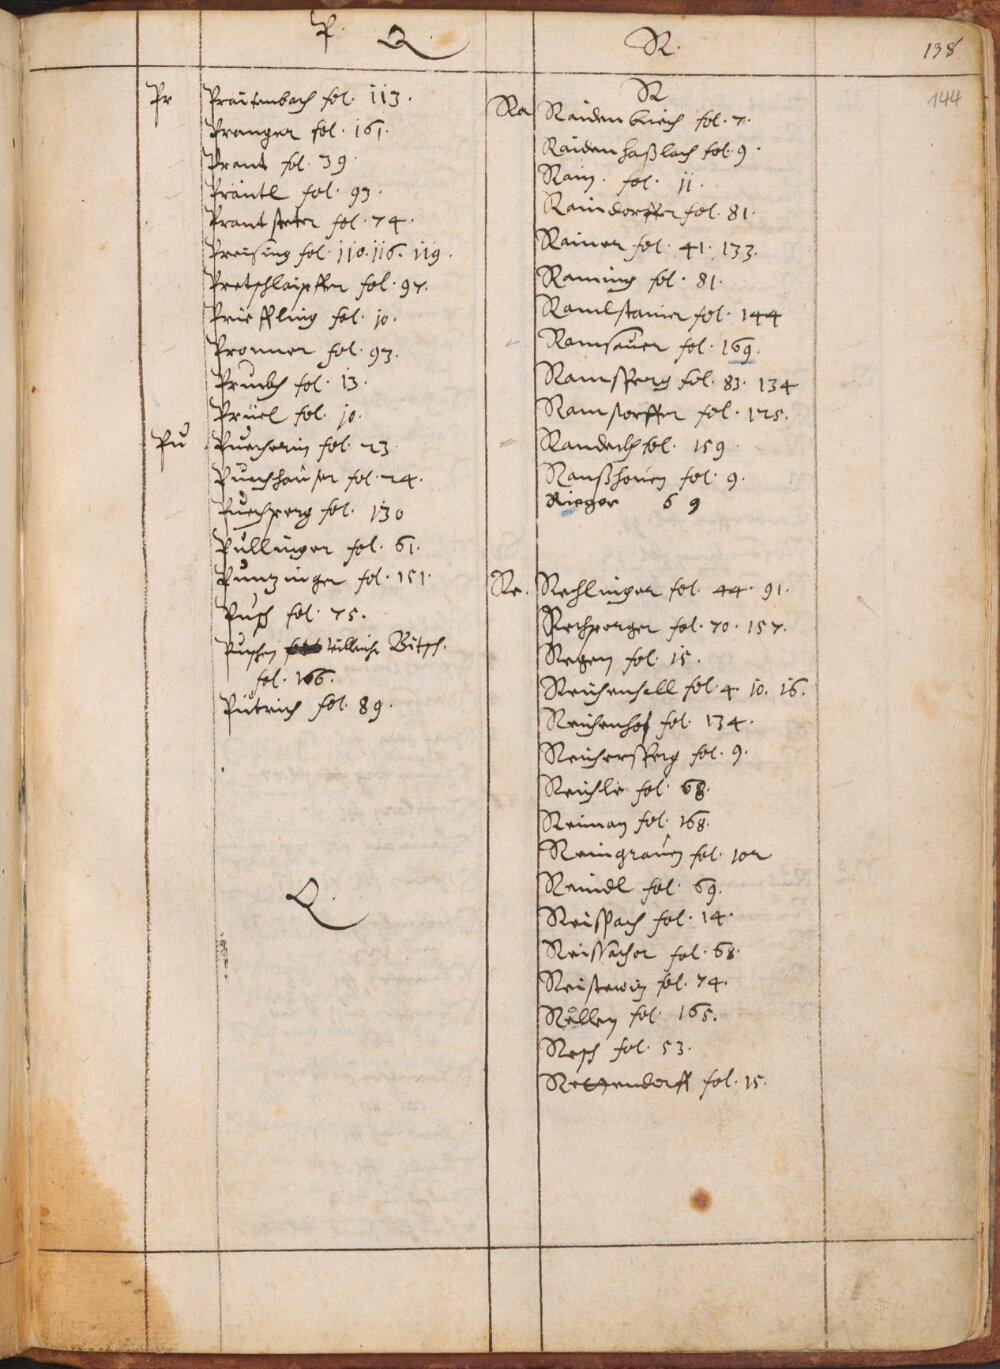 P. Q
R.
138
144
Pr
Praitenbach fol. 113.
Pranger fol. 161.
Prant fol. 39.
Prantl fol. 93.
Prantsteter fol. 74.
Preising fol. 110. 116. 119.
Pretschlaipffer fol. 97.
Prieffling fol. 10.
Pronner fol. 93.
fol. 13.
Prüel fol. 10.
Pu
fol. 23.
Puechhauser fol. 24.
Puechperg fol. 130
Pullinger fol. 61.
Puntzinger fol. 151.
Pusch fol. 75.
Bitsch.
fol. 166.
Pütrich fol. 89.
Q.
R
Ra
Raidenbuech fol. 7.
Raidenhaßlach fol. 9.
Rain. fol. 11.
Raindorffer fol. 81.
Rainer fol. 41. 133.
Raming fol. 81.
Ramlstainer fol. 144
Ramsauer fol. 169.
Ramsperg fol. 83. 134
Ramstorffer fol. 125.
Randeckh fol. 159.
Ranßhoven fol. 9.
Rieger 69
Re.
Rechlinger fol. 44. 91.
Rechperger fol. 70. 157.
Regen fol. 15.
Reichenhall fol. 4. 10. 16.
Reichenhof fol. 134.
Reichersperg fol. 9.
Reichle fol. 68.
Reiman fol. 168.
Reingrauen fol. 102
Reindl fol. 69.
Reispach fol. 14.
Reissacher fol. 68.
fol. 74.
Rellen fol. 165.
Resch fol. 53.
Rettendorff fol. 15.